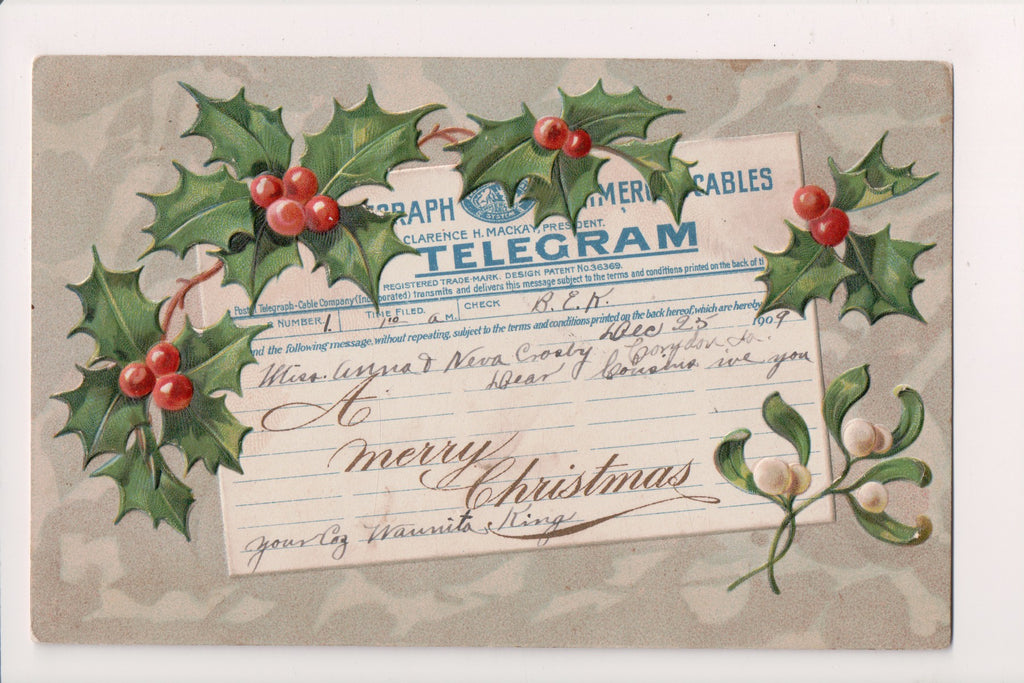 GRAPH SYSTEM MMERI CABLES
CLARENCE H. MACKAY, PRESIDENT.
TELEGRAM
REGISTERED TRADE-MARK. DESIGN PATENT No. 36369.
Postal Telegraph-Cable Company (Incorporated) transmits and delivers this message subject to the terms and conditions printed on the back of ti
R NUMBER 1. TIME FILED. 1:10 A M. CHECK B.E.K.
nd the following message, without repeating, subject to the terms and conditions printed on the back hereof, which are hereby
Dec 25 1909
Miss Anna & Neva Crosby Corydon Ia.
Dear Cousins ive you
A
Merry
Christmas
your Coz Waunita King